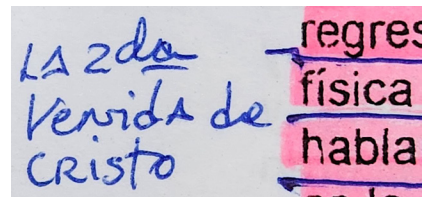 LA 2da
Venida de
CRISTO
regres
física
habla